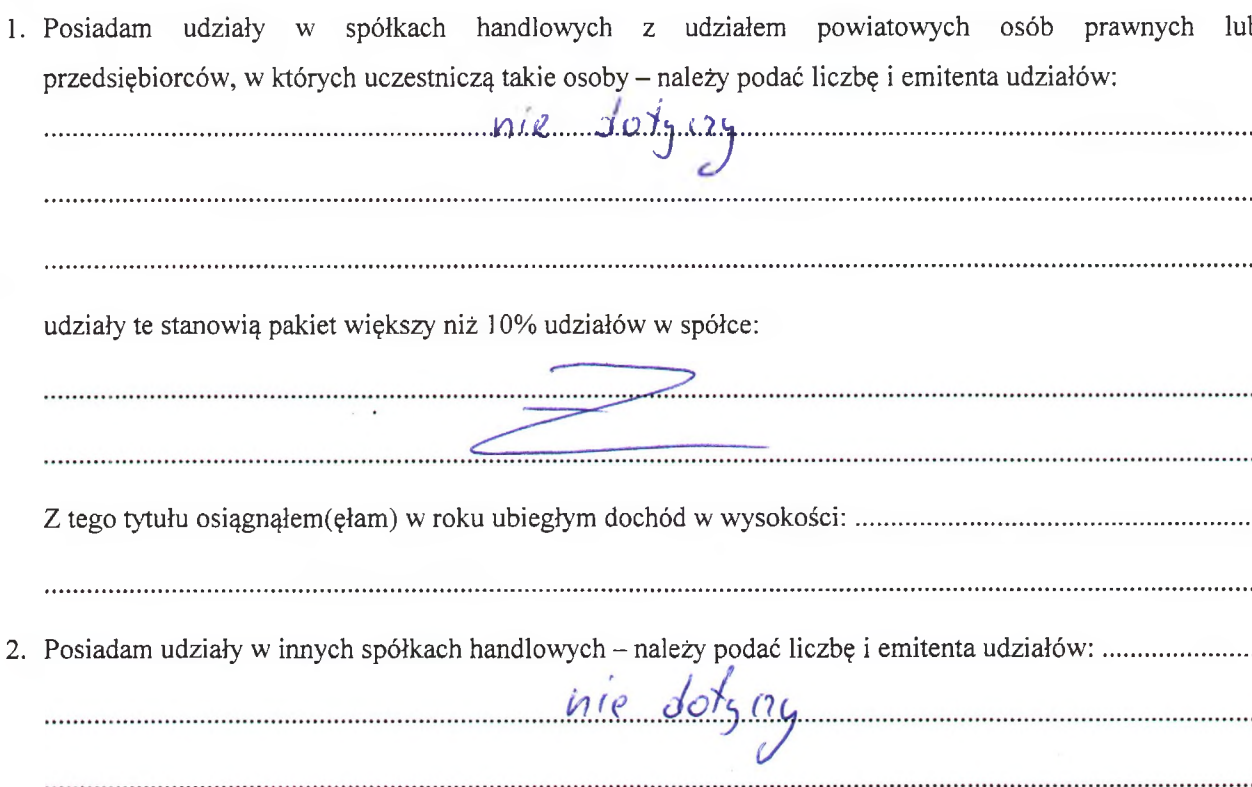 1. Posiadam udziały w spółkach handlowych z udziałem powiatowych osób prawnych lub
przedsiębiorców, w których uczestniczą takie osoby – należy podać liczbę i emitenta udziałów:
nie dotyczy
udziały te stanowią pakiet większy niż 10% udziałów w spółce:
Z tego tytułu osiągnąłem(ęłam) w roku ubiegłym dochód w wysokości: ..........
2. Posiadam udziały w innych spółkach handlowych – należy podać liczbę i emitenta udziałów: ..........
nie dotyczy